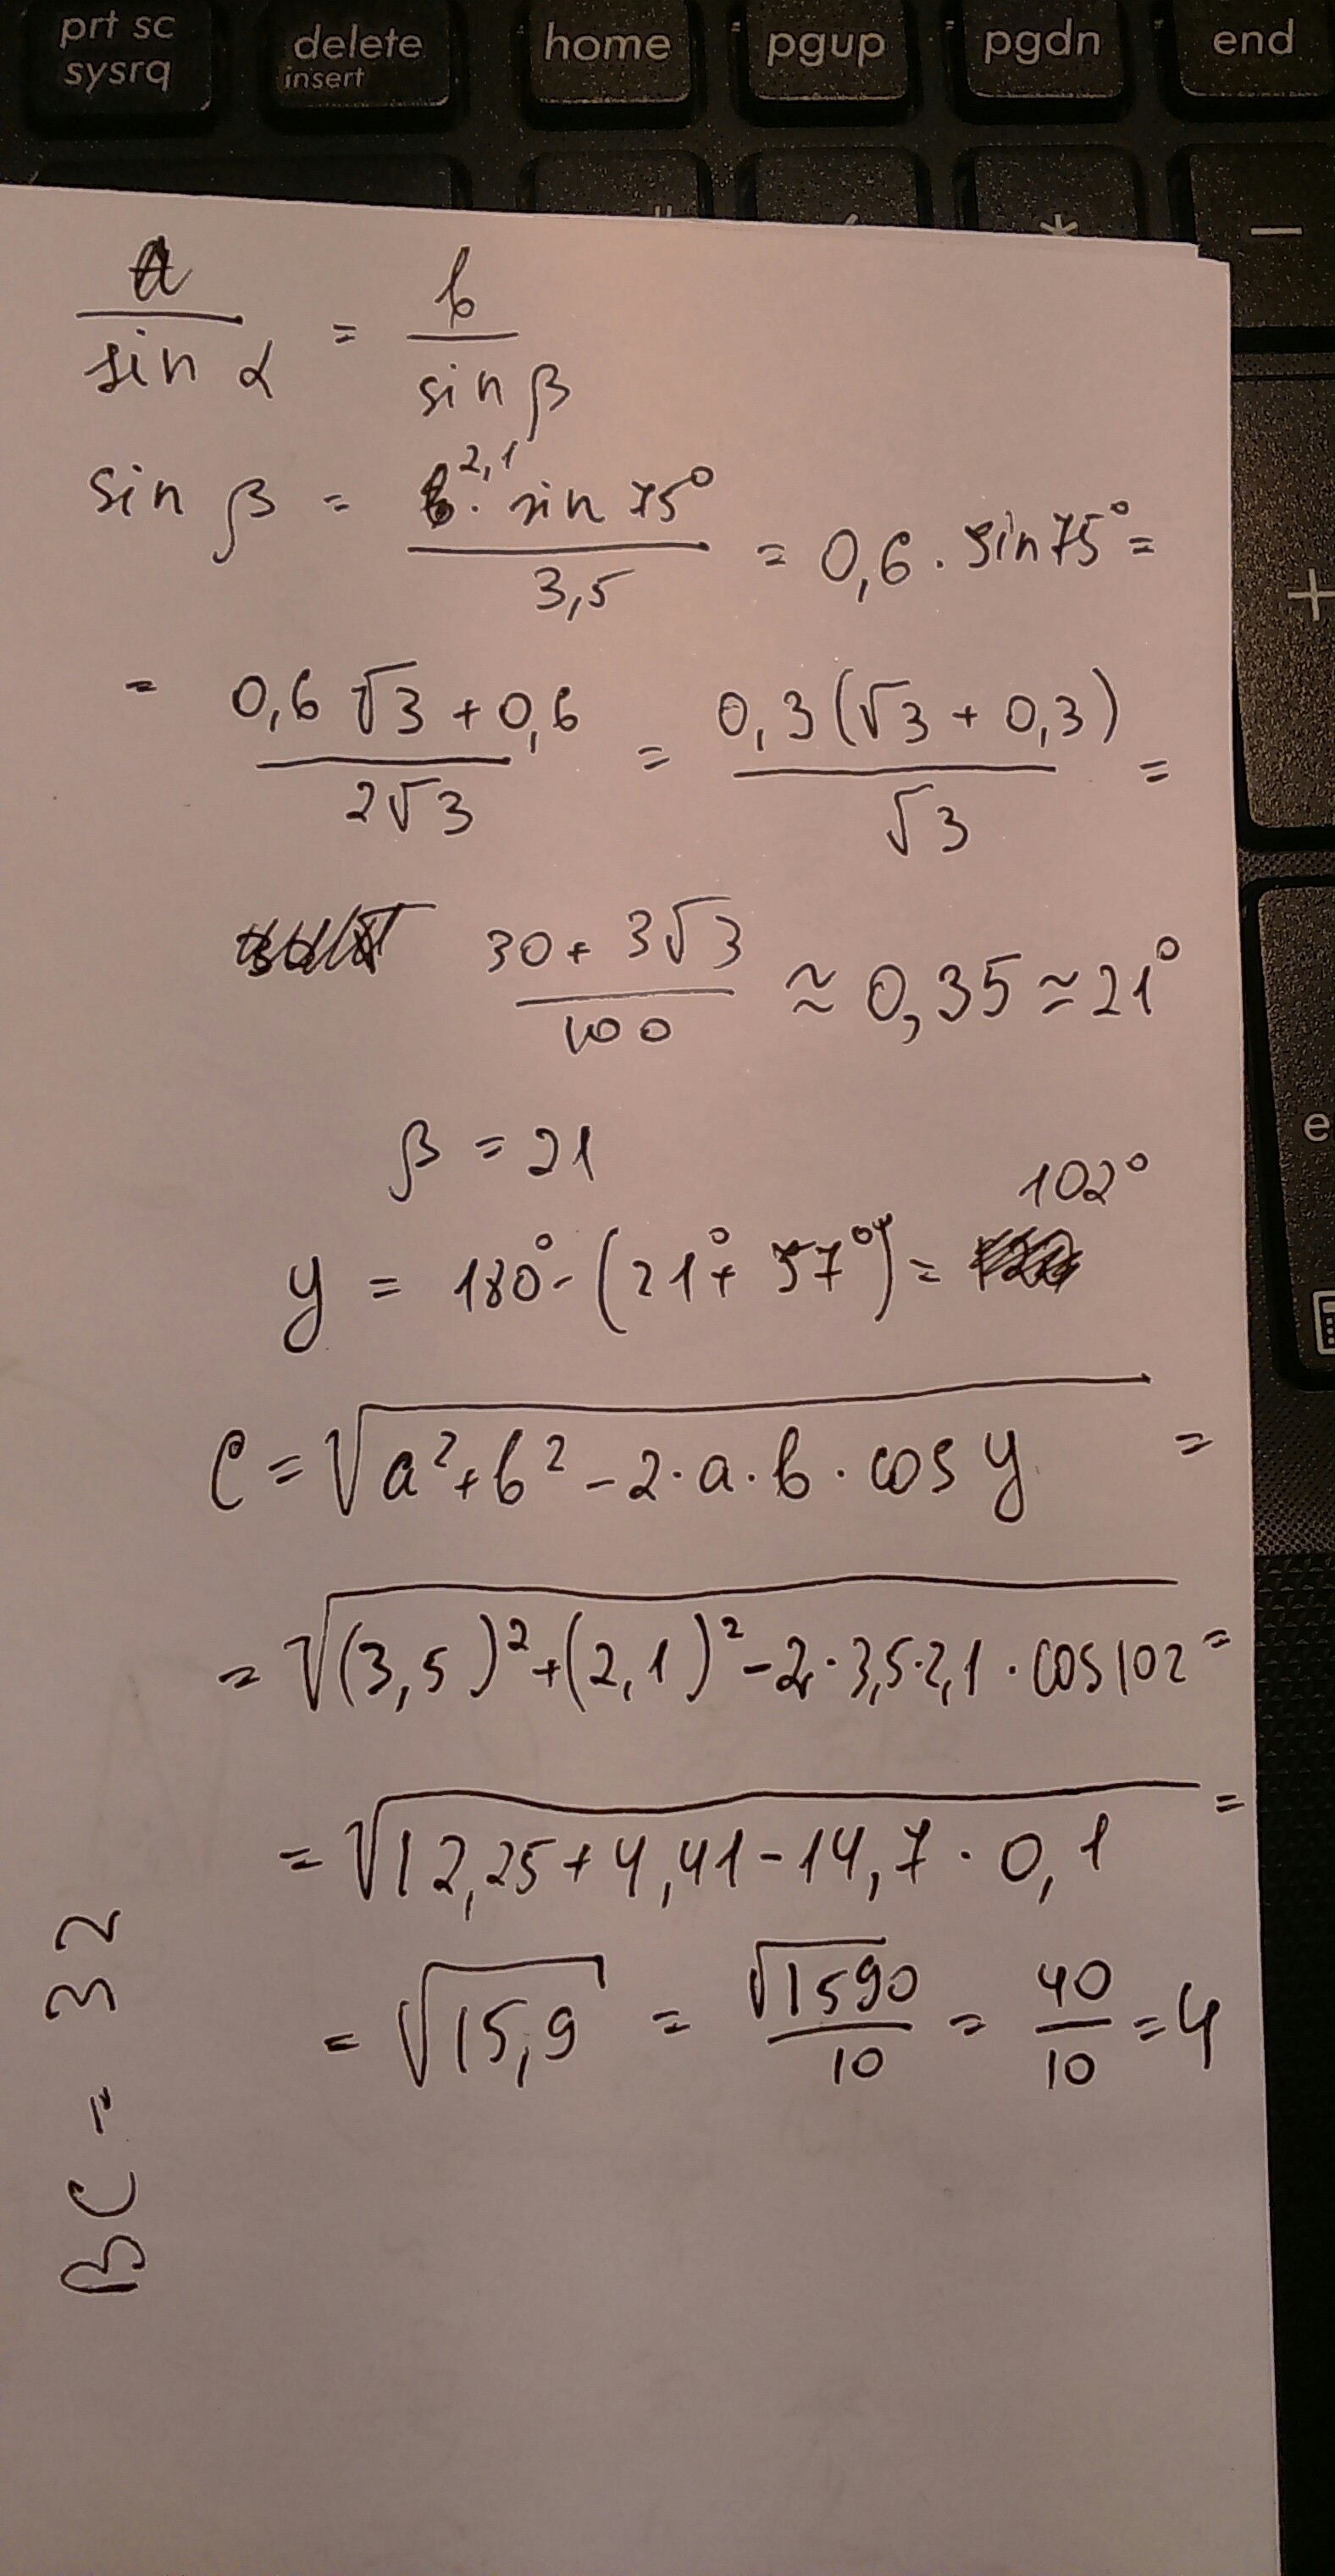 prt sc
sysrq
delete
insert
home
pgup
pgdn
end
*
−
+
e
a/sin α = b/sin β
sin β = 2,1 · sin 75°/3,5 = 0,6 · sin 75° =
= 0,6√3 + 0,6/2√3 = 0,3(√3 + 0,3)/√3 =
30 + 3√3/100 ≈ 0,35 ≃ 21°
β = 21
y = 180° - (21° + 57°) = 102°
c = √a² + b² - 2·a·b·cos y =
= √(3,5)² + (2,1)² - 2·3,5·2,1·cos 102 =
= √12,25 + 4,41 - 14,7 · 0,1 =
= √15,9 = √1590/10 = 40/10 = 4
BC = 32